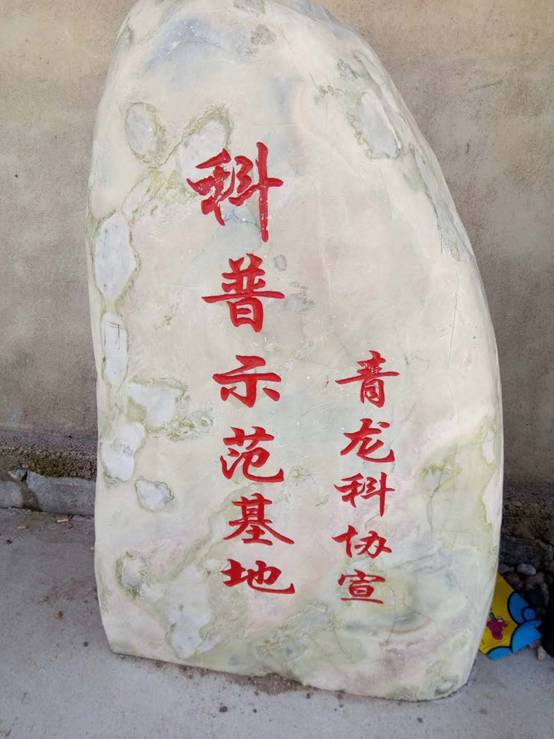 科普示范基地
青龙科协宣